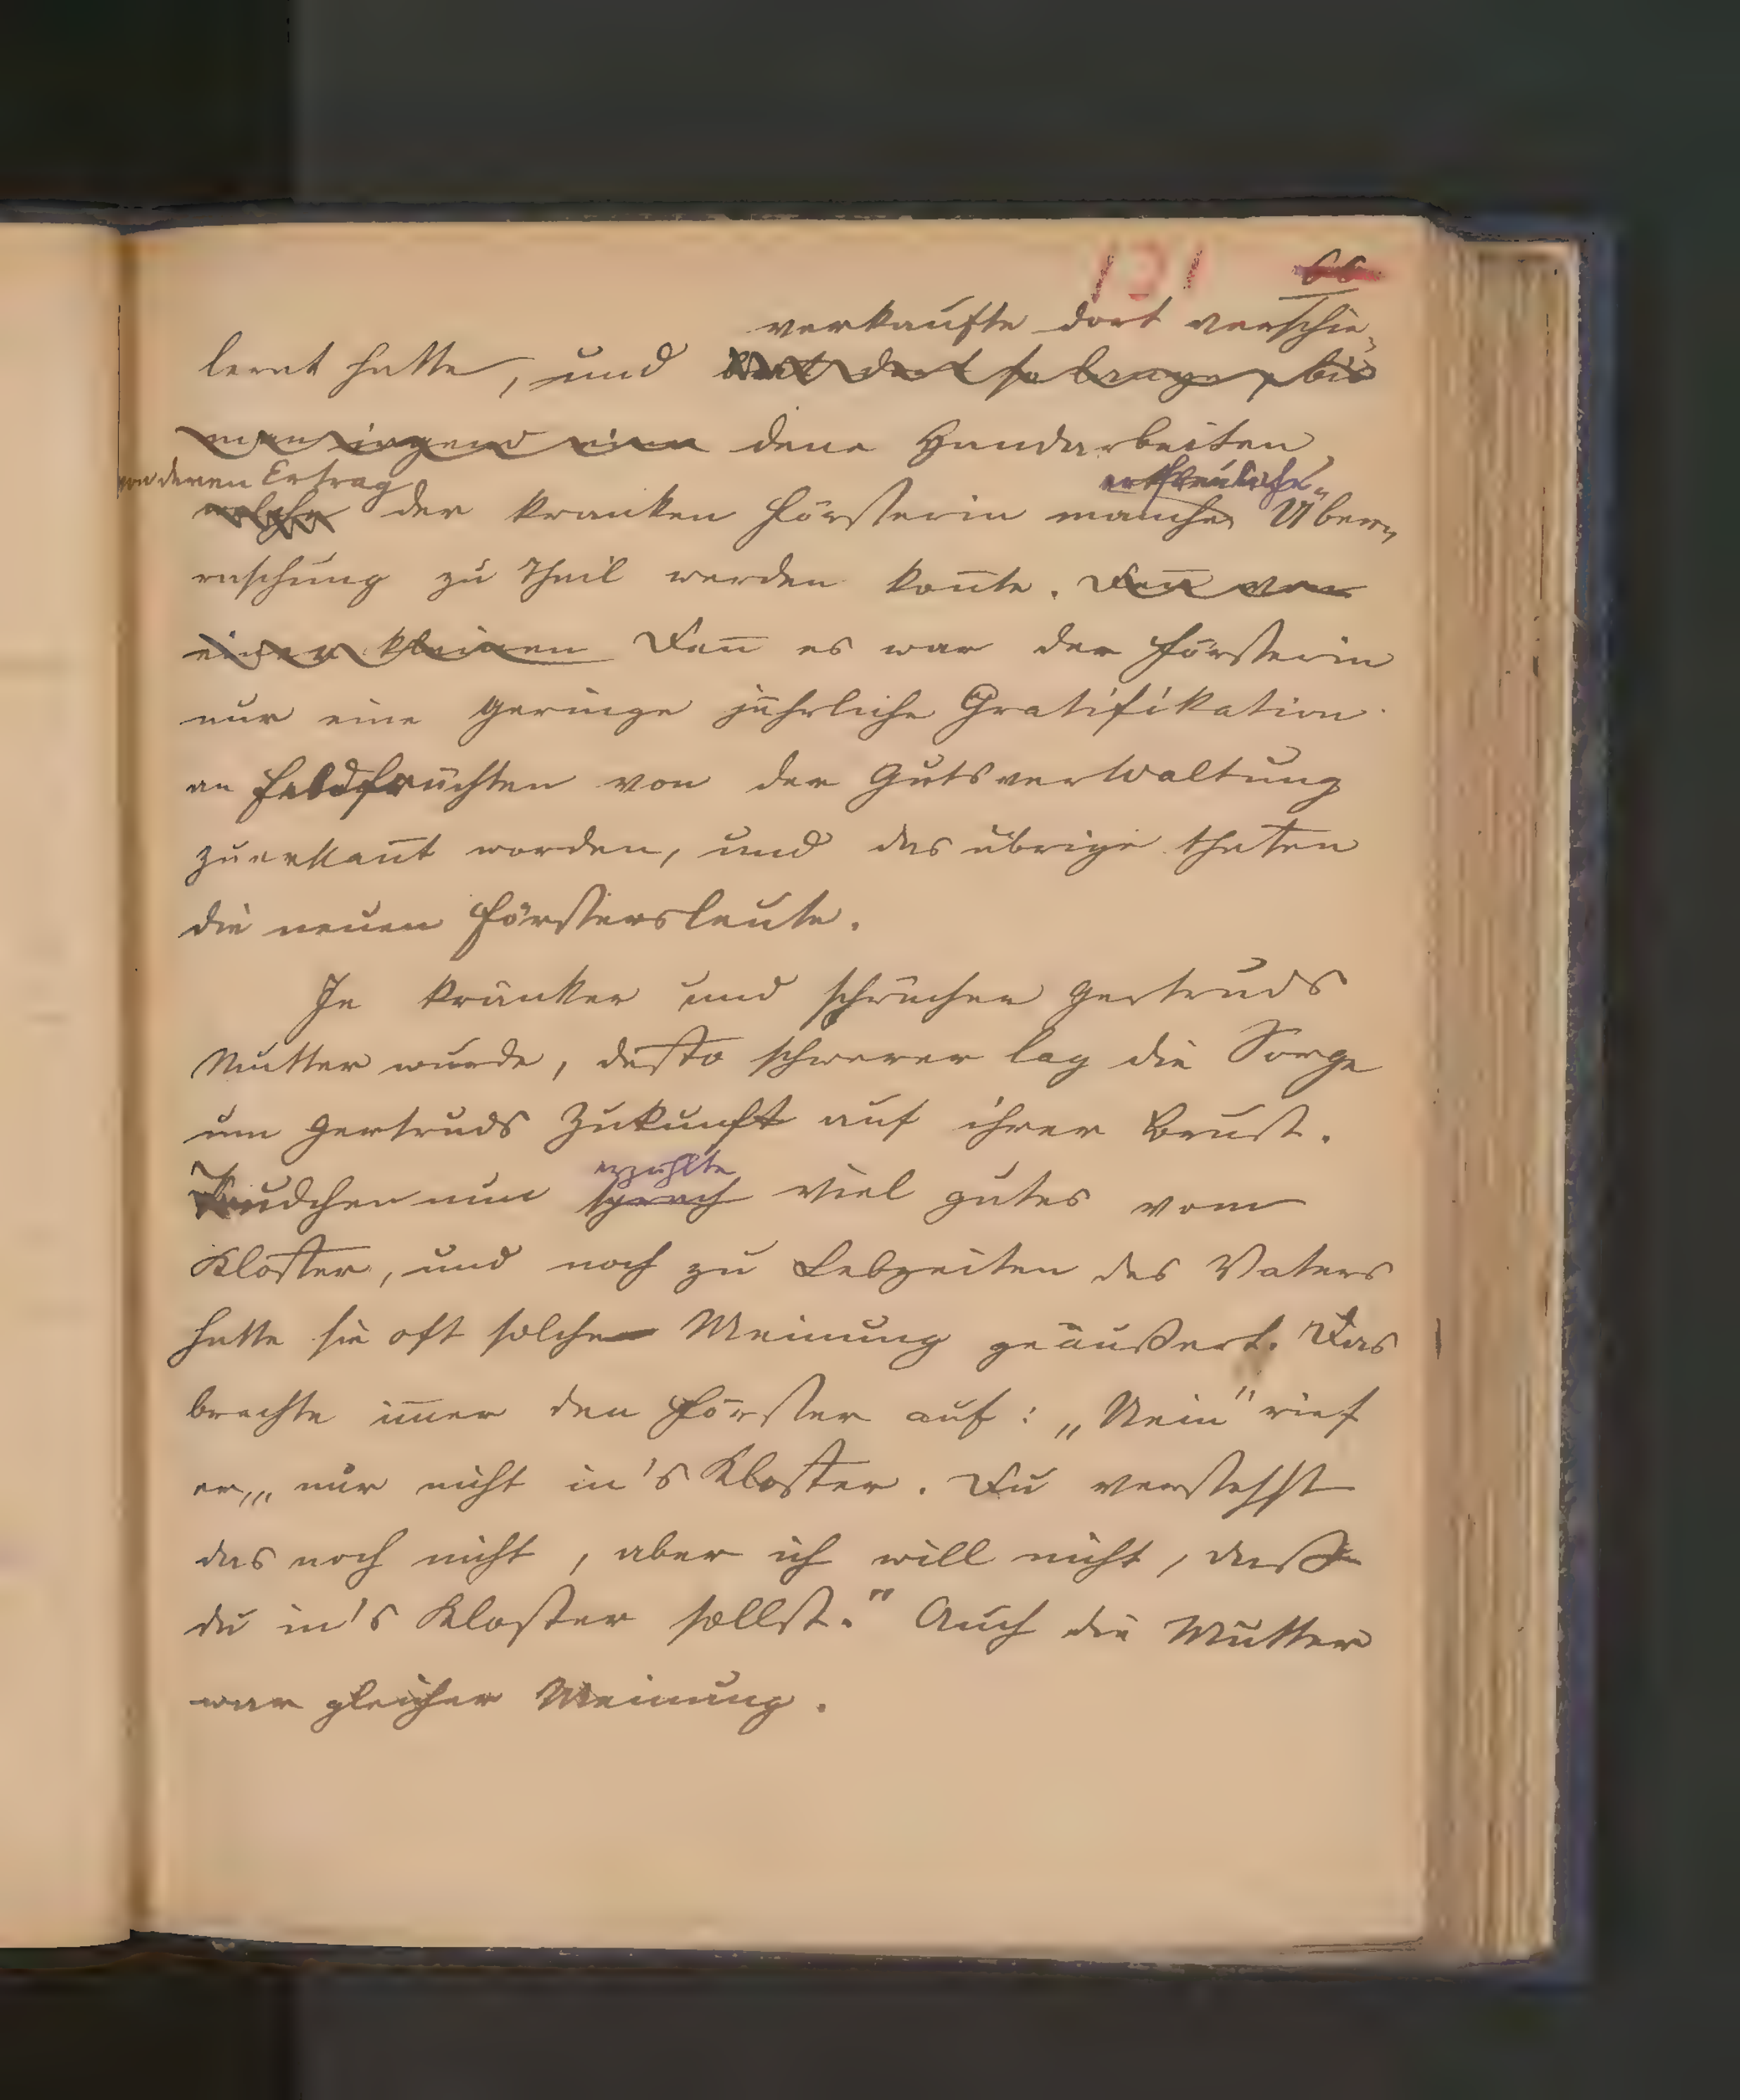 131 66
verkaufte dort verschie-
lernt hatte, und bot dort so lange, bis
man irgend eine dene Handarbeiten,
von deren Ertrag erfreuliche
welche der kranken Försterin manche Über-
raschung zu Theil werden kon̄te. Den̄ von
einer kleinen Den̄ es war der Försterin
nur eine geringe jährliche Gratifikation
an Feldfrüchten von der Gutsverwaltung
zuerkan̄t worden, und das übrige thaten
die neuen Förstersleute.
Je kränker und schwächer Gertruds
Mutter wurde, desto schwerer lag die Sorge
um Gertruds Zukunft auf ihrer Brust.
erzählte
Trudchen nun sprach viel gutes vom
Kloster, und noch zu Lebzeiten des Vaters
hatte sie oft solche Meinung geäußert. Das
brachte im̄er den Förster auf: „Nein" rief
er, „nur nicht in's Kloster. Du verstehst
das noch nicht, aber ich will nicht, daß
du in's Kloster sollst." Auch die Mutter
war gleicher Meinung.